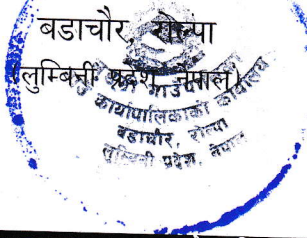 बडाचौर, रोल्पा
(लुम्बिनी प्रदेश, नेपाल)
कार्यपालिकाको कार्यालय
बडाचौर, रोल्पा
लुम्बिनी प्रदेश, नेपाल